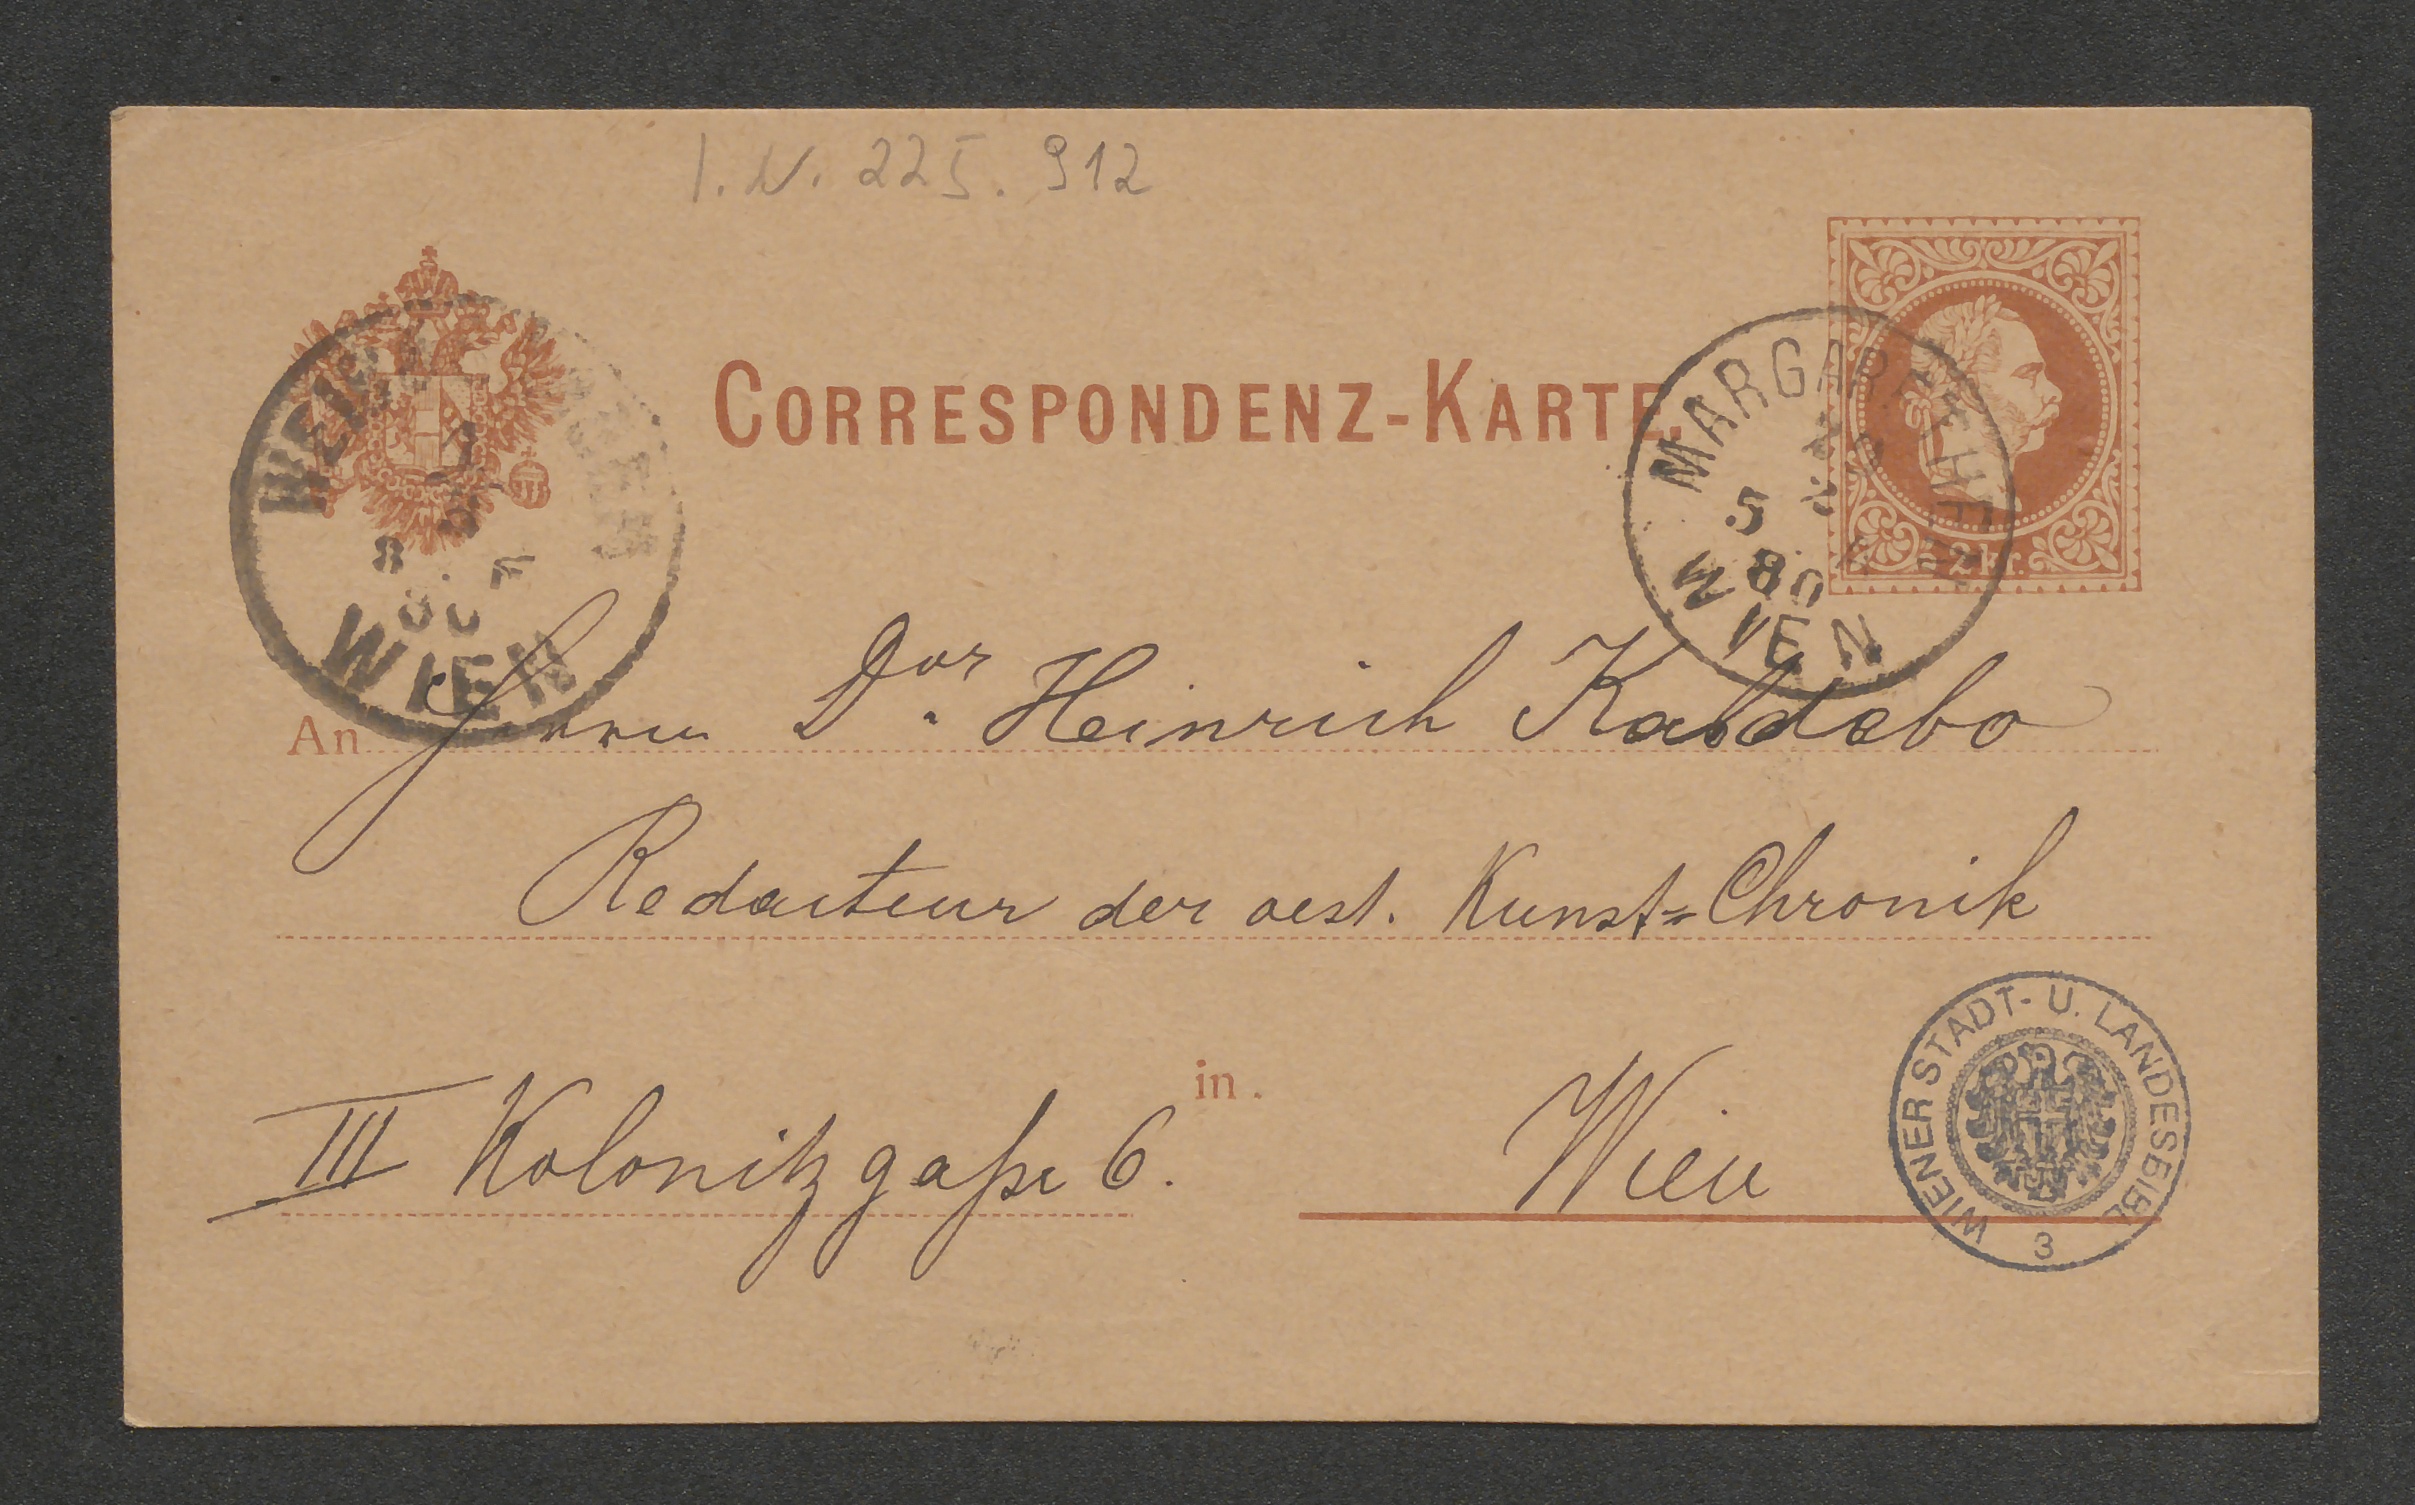 I.N. 225.912
CORRESPONDENZ-KARTE.
MARGARETHEN
5
80
WIEN
2 kr.
8
80
WIEN
An Herrn Dor. Heinrich Kabdebo
Redacteur der oest. Kunst=Chronik
in
III Kolonitzgaße 6. Wien
WIENER STADT- U. LANDESBIBL.
3